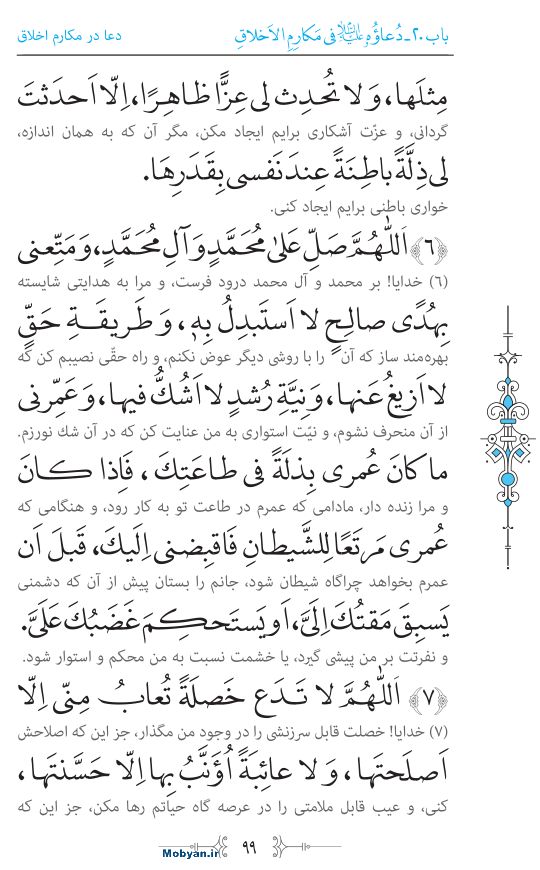 باب ۲۰ـ دُعاؤُه عَلَيْهِ السَّلام فى مَكارِمِ الاَخلاقِ
دعا در مکارم اخلاق
مِثلَها، وَ لا تُحدِث لى عِزًّا ظاهِرًا، اِلّا اَحدَثتَ
گردانی، و عزّت آشکاری برایم ایجاد مکن، مگر آن که به همان اندازه،
لى ذِلَّةً باطِنَةً عِندَ نَفسى بِقَدَرِها.
خواری باطنی برایم ایجاد کنی.
﴿٦﴾ اَللّٰهُمَّ صَلِّ عَلىٰ مُحَمَّدٍ وَ آلِ مُحَمَّدٍ، وَ مَتِّعنى
(۶) خدایا! بر محمد و آل محمد درود فرست، و مرا به هدایتی شایسته
بِهُدًى صالِحٍ لا اَستَبدِلُ بِهٖ، وَ طَريقَةِ حَقٍّ
بهره‌مند ساز که آن را با روشی دیگر عوض نکنم، و راه حقّی نصیبم کن که
لا اَزيغُ عَنها، وَ نِيَّةِ رُشدٍ لا اَشُكُّ فيها، وَ عَمِّرنى
از آن منحرف نشوم، و نیّت استواری به من عنایت کن که در آن شك نورزم.
ما كانَ عُمرى بِذلَةً فى طاعَتِكَ، فَاِذا كانَ
و مرا زنده دار، مادامی که عمرم در طاعت تو به کار رود، و هنگامی که
عُمرى مَرتَعًا لِلشَّيطانِ فَاقبِضنى اِلَيكَ، قَبلَ اَن
عمرم بخواهد چراگاه شیطان شود، جانم را بستان پیش از آن که دشمنی
يَسبِقَ مَقتُكَ اِلَىَّ، اَو يَستَحكِمَ غَضَبُكَ عَلَىَّ.
و نفرتت بر من پیشی گیرد، یا خشمت نسبت به من محکم و استوار شود.
﴿٧﴾ اَللّٰهُمَّ لا تَدَع خَصلَةً تُعابُ مِنّى اِلّا
(۷) خدایا! خصلت قابل سرزنشی را در وجود من مگذار، جز این که اصلاحش
اَصلَحتَها، وَ لا عائِبَةً اُوَنَّبُ بِها اِلّا حَسَّنتَها،
کنی، و عیب قابل ملامتی را در عرصه گاه حیاتم رها مکن، جز این که
۹۹
Mobyan.ir